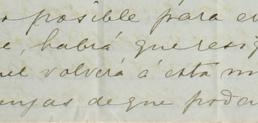 posible para
habrá que resig
volverá á esta
de que poda